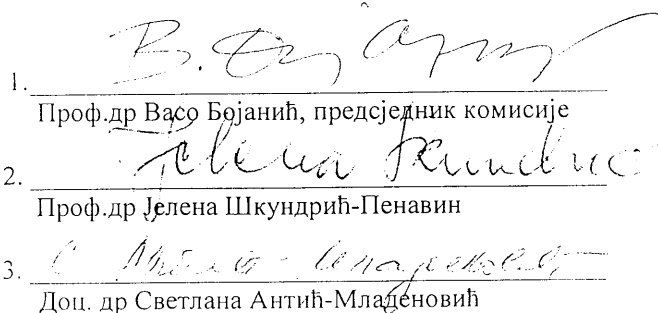 1.
Проф.др Васо Бојанић, предсједник комисије
2.
Проф.др Јелена Шкундрић-Пенавин
3.
Доц. др Светлана Антић-Младеновић